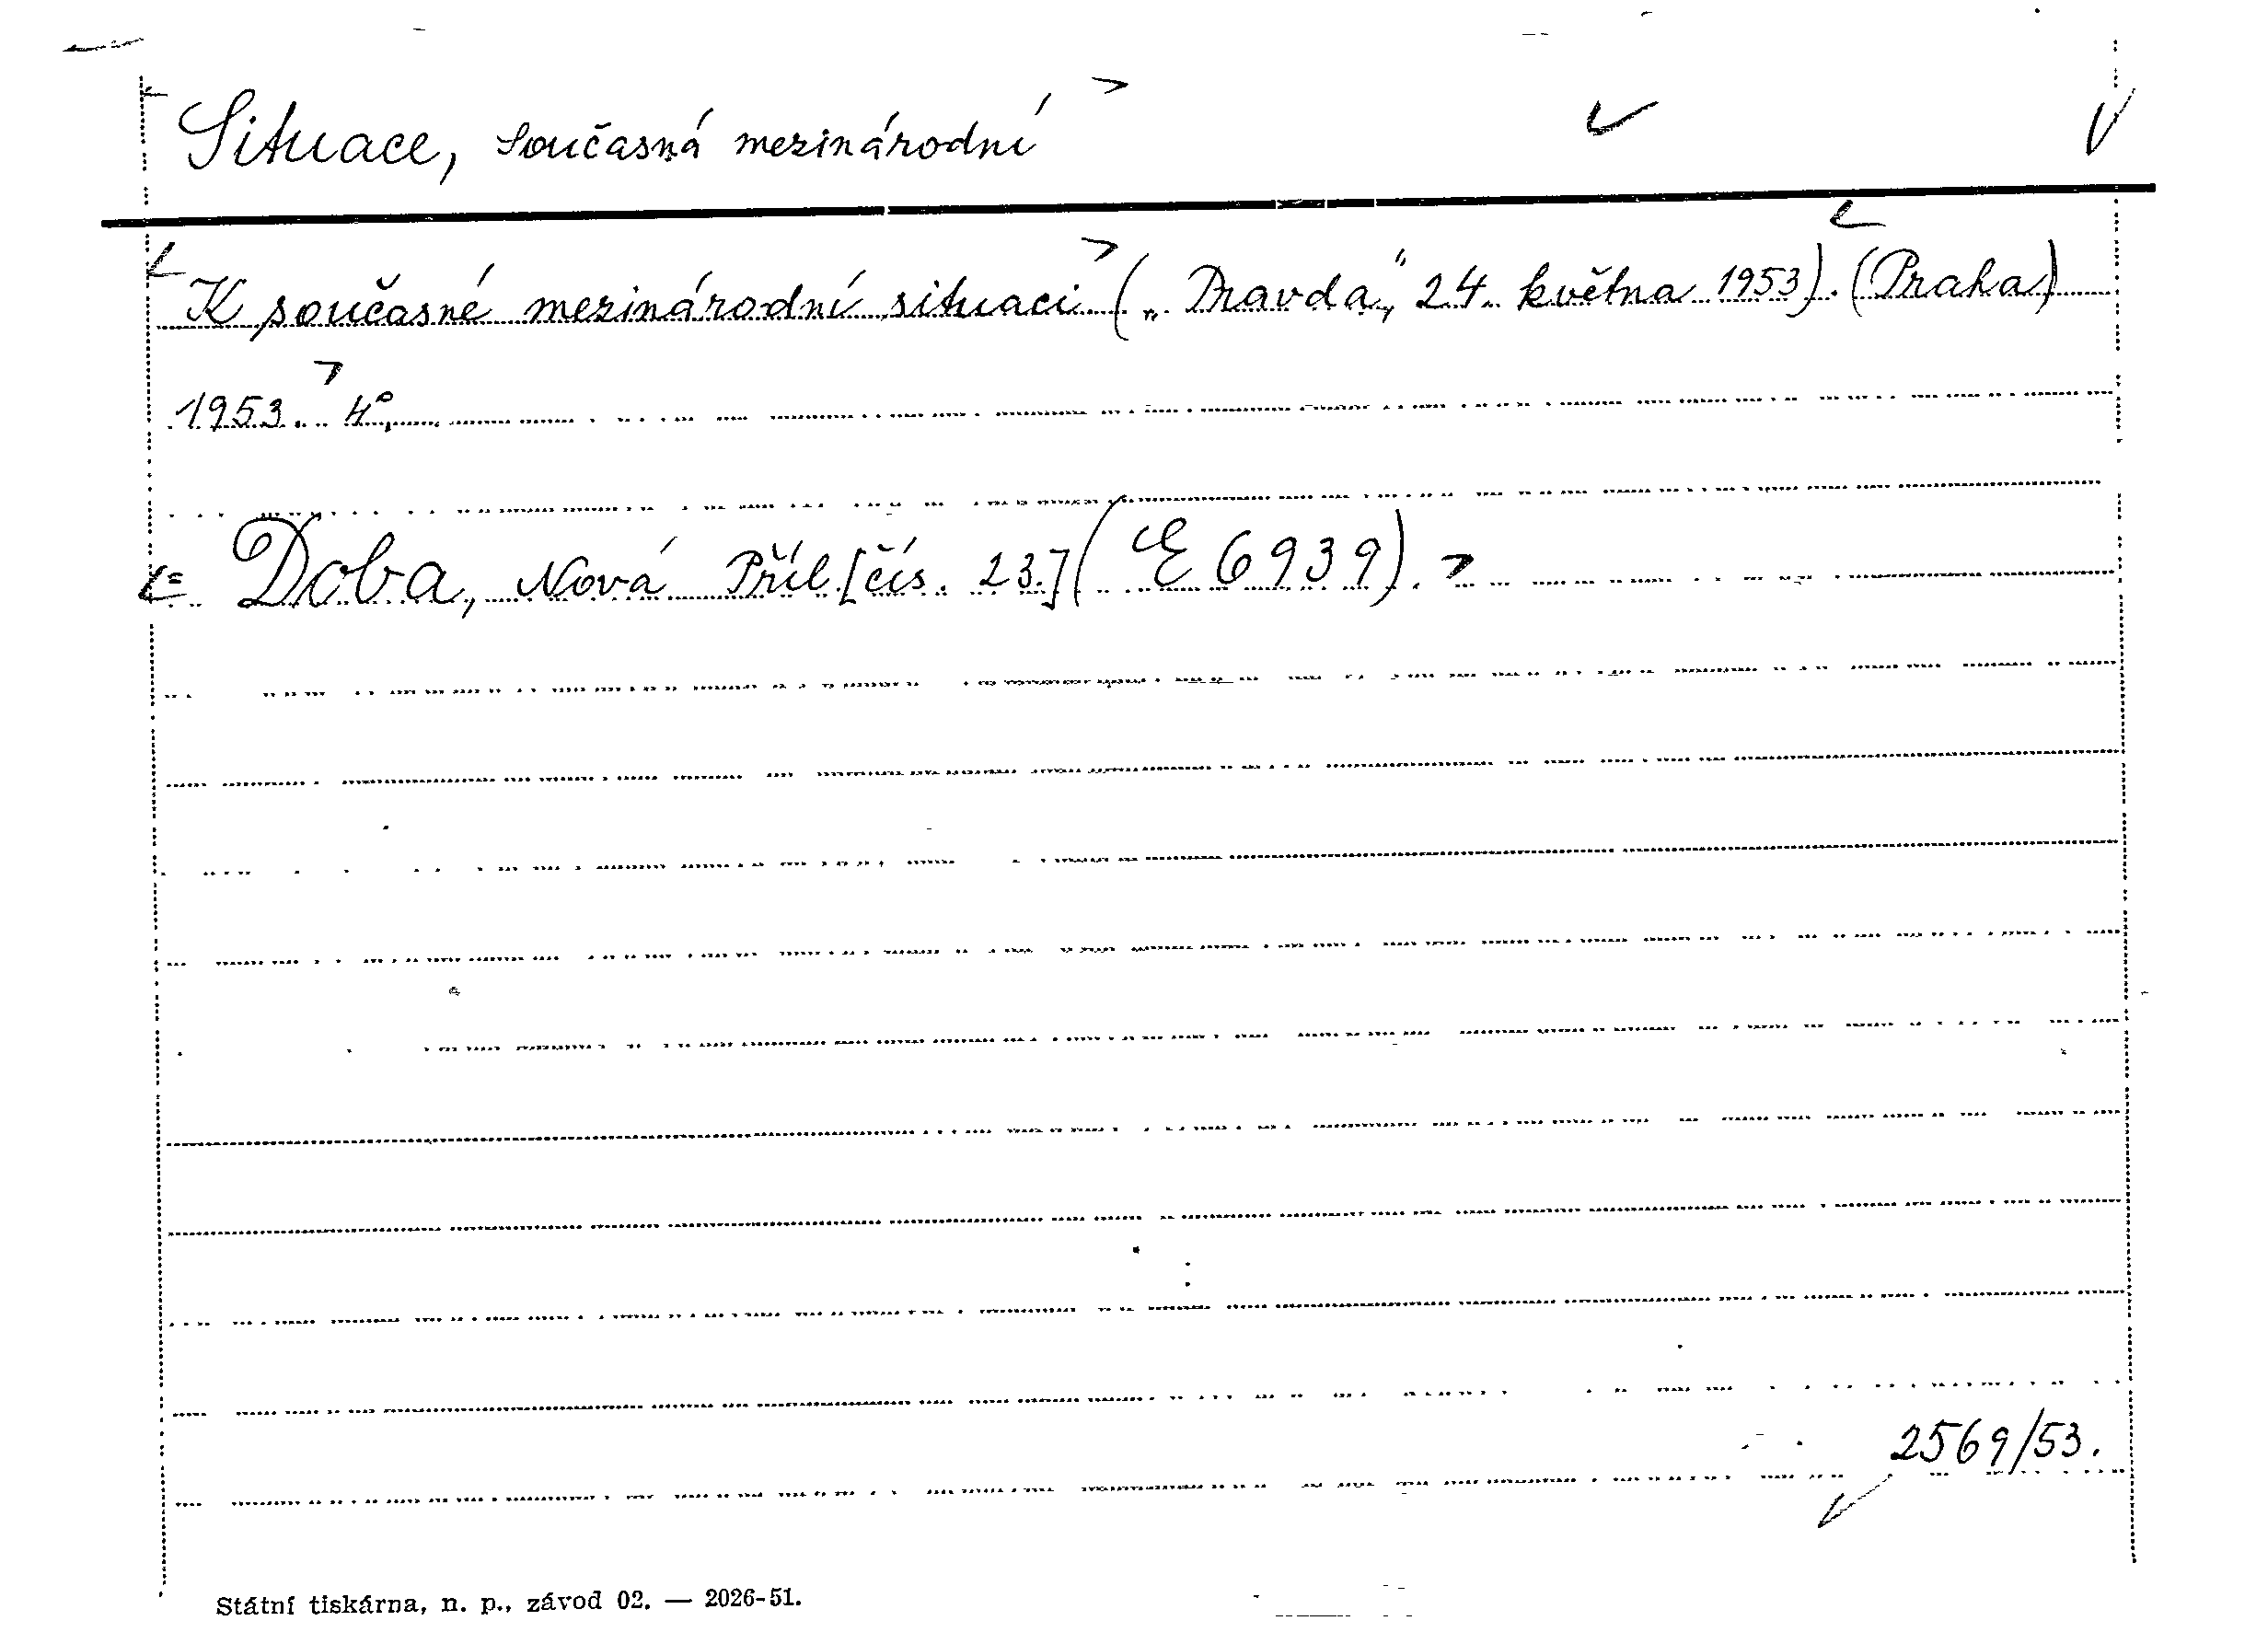 Situace, současná mezinárodní
K současné mezinárodní situaci („Pravda," 24. května 1953). (Praha)
1953. 4°.
= Doba, Nová Příl. [čís. 23.] (E 6939).
2569/53.
Státní tiskárna, n. p., závod 02. — 2026-51.